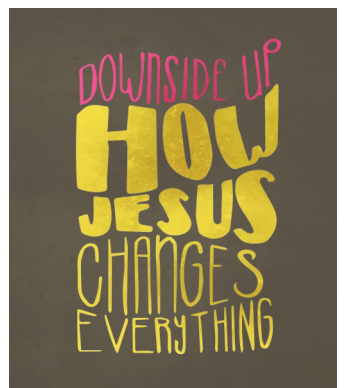 DOWNSIDE UP
HOW
JESUS
CHANGES
EVERYTHING